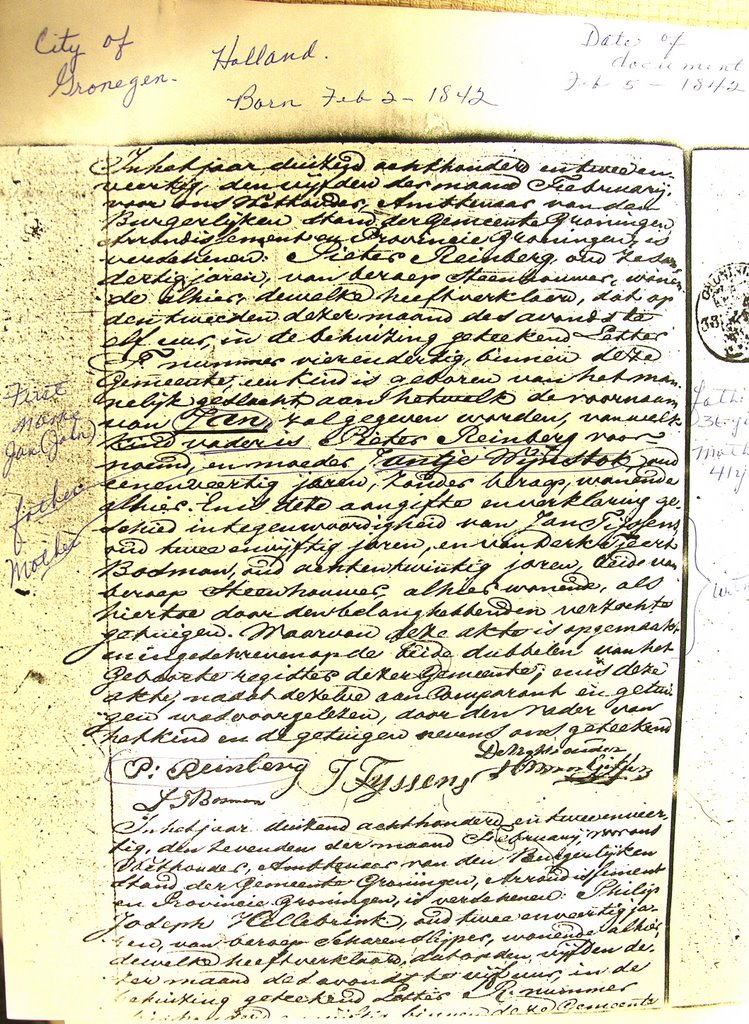 City of
Gronegen.
Holland.
Born Feb 2 - 1842
Date of
document
Feb 5 - 1842
In het jaar duizend achthonderd en twee en
veertig, den vijfden der maand Februarij,
voor ons Wethouder, Ambtenaar van den
Burgerlijken Stand der Gemeente Groningen,
Arrondissement en Provincie Groningen, is
verschenen: Pieter Reinberg, oud zes en
dertig jaren, van beroep Steenhouwer, wonen
de alhier, dewelke heeft verklaard, dat op
den tweeden dezer maand des avonds te
elf uur, in de behuizing geteekend Letter
F nummer vierendertig, binnen deze
Gemeente, een kind is geboren van het man
nelijk geslacht aan hetwelk de voornaam
van Jan zal gegeven worden, van welk
kind vader is Pieter Reinberg voor-
noemd, en moeder Jantje Wijnstok, oud
eenenveertig jaren, zonder beroep, wonende
alhier. En is deze aangifte en verklaring ge-
schied in tegenwoordigheid van Jan Tijssens
oud twee en vijftig jaren, en van Derk
Bosman, oud achtentwintig jaren, beide van
beroep Steenhouwer, alhier wonende, als
hiertoe door den belanghebbenden verzochte
getuigen. Waarvan deze akte is opgemaakt
en ingeschreven op de beide dubbelen van het
Geboorte register dezer Gemeente; en is deze
akte, nadat dezelve aan Comparant en getui
gen was voorgelezen, door den vader van
het kind en de getuigen nevens ons geteekend
P: Reinberg
J Tyssens
De Wethouder
Bosman
In het jaar duizend achthonderd en tweeenveer-
tig, den zevenden der maand Februarij, voor ons
Wethouder, Ambtenaar van den Burgerlijken
Stand der Gemeente Groningen, Arrondissement
en Provincie Groningen, is verschenen: Philip
Joseph Hillebrink, oud twee en veertig ja-
ren, van beroep Scharenslijper, wonende alhier
dewelke heeft verklaard, dat op den vijfden de-
zer maand des avonds te vijf uur, in de
behuizing geteekend Letter R nummer
binnen deze Gemeente
First
name
Jan (John)
father
Mother
36 y
Moth
41 y